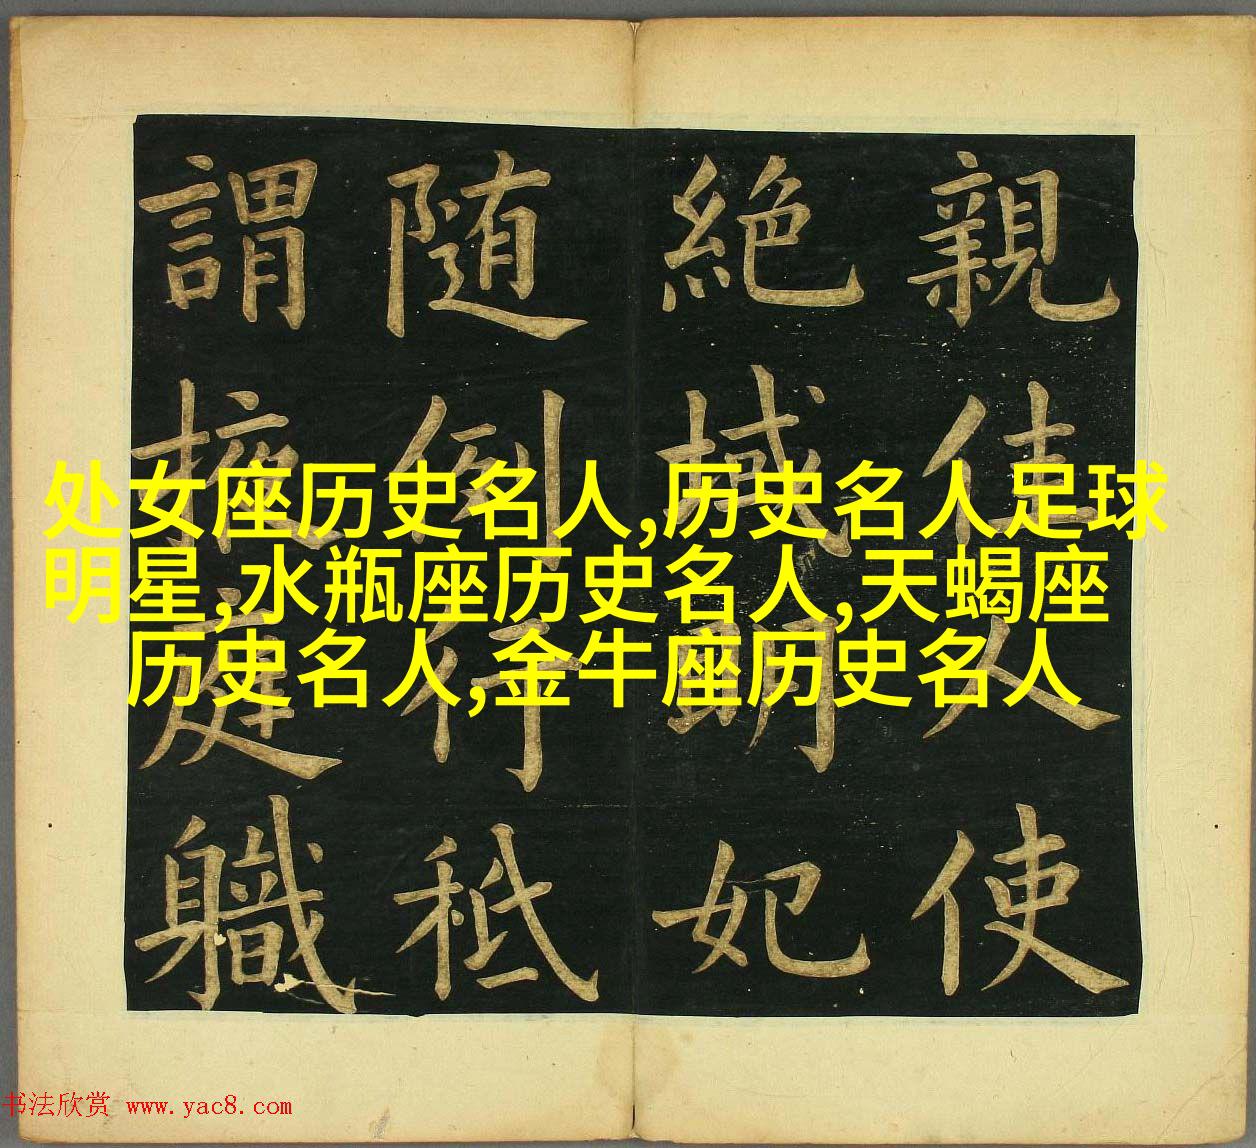 处女座历史名人,历史名人足球
明星,水瓶座历史名人,天蝎座
历史名人,金牛座历史名人
親佳人使
絶域明妃
随例行秪
謂庭軄
书法欣赏 www.yac8.com